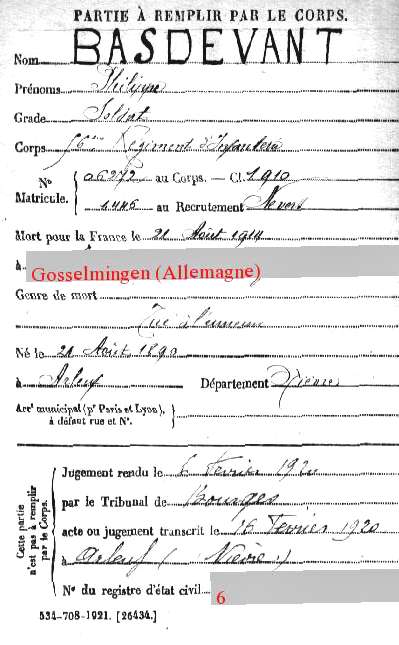 PARTIE À REMPLIR PAR LE CORPS.
Nom BASDEVANT
Prénoms Philippe
Grade Soldat
Corps 56ème Régiment d'Infanterie
Nº Matricule. 06272 au Corps. — Cl. 1910
1445 au Recrutement Nevers
Mort pour la France le 21 Août 1914
à Gosselmingen (Allemagne)
Genre de mort
Tué à l'ennemi
Né le 21 Août 1890
à Arleuf Département Nièvre
Arrt municipal (pr Paris et Lyon),
à défaut rue et Nº.
Cette partie n'est pas à remplir par le Corps.
Jugement rendu le 6 Février 1920
par le Tribunal de Bourges
acte ou jugement transcrit le 16 Février 1920
à Arleuf (Nièvre)
Nº du registre d'état civil 6
534-708-1921. [26434.]